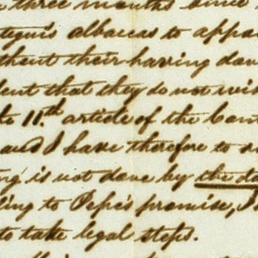 three months since
albaceas to appo
thout their having don
dent that they do not wis
to 11th article of the Con
and I have therefore to
ng is not done by the da
ding to Pepe's promise, I
to take legal steps.